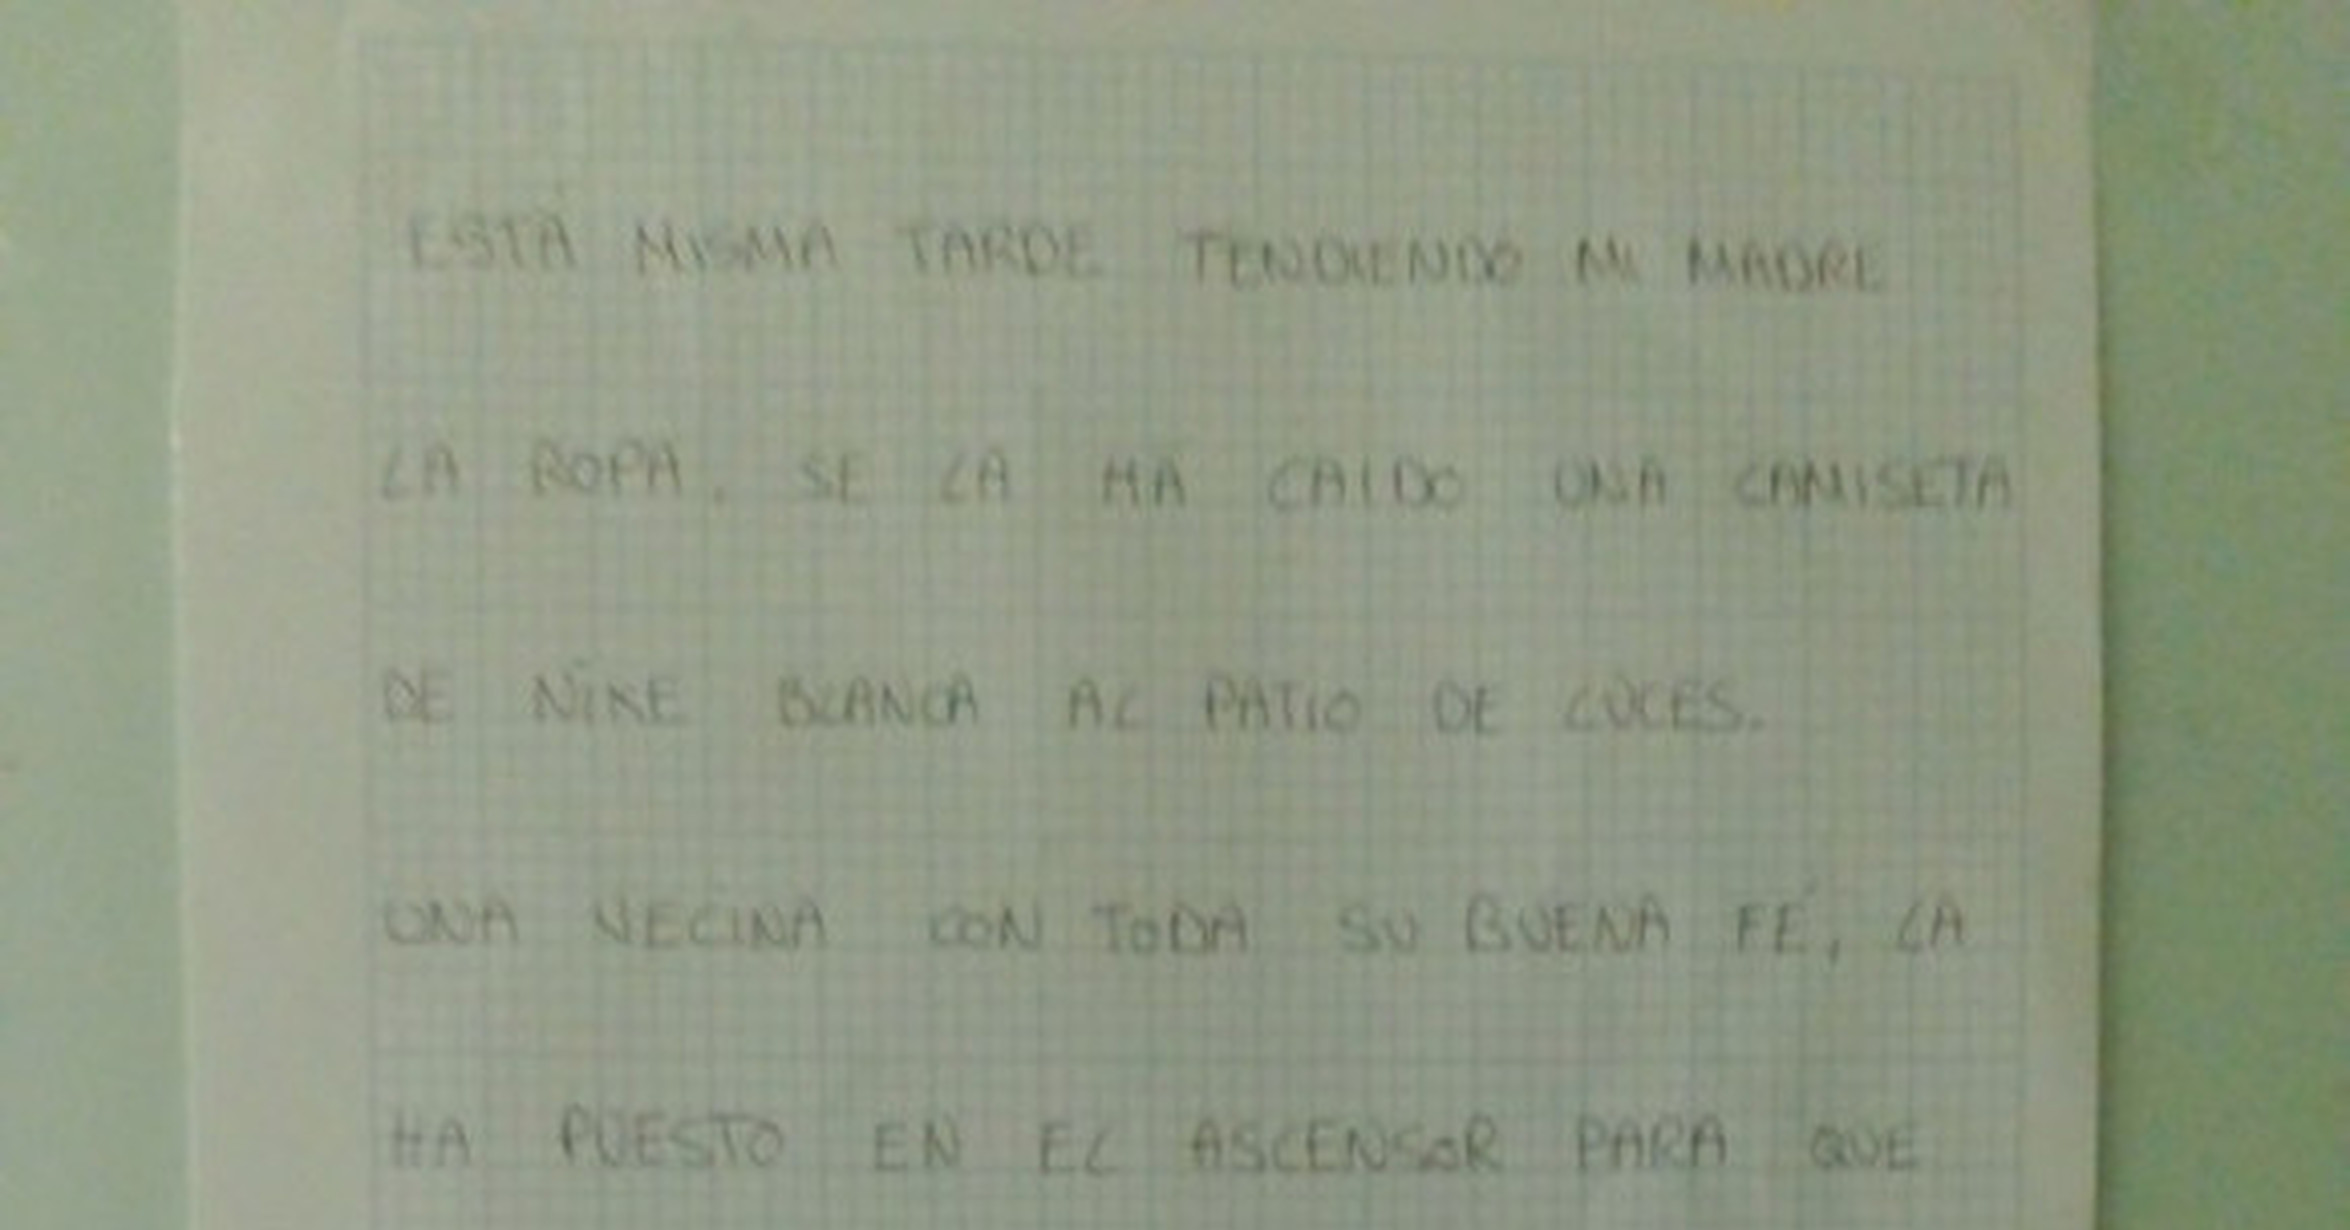 ESTA MISMA TARDE TENDIENDO MI MADRE
LA ROPA, SE LA HA CAIDO UNA CAMISETA
DE NIKE BLANCA AL PATIO DE LUCES.
UNA VECINA CON TODA SU BUENA FÉ, LA
HA PUESTO EN EL ASCENSOR PARA QUE